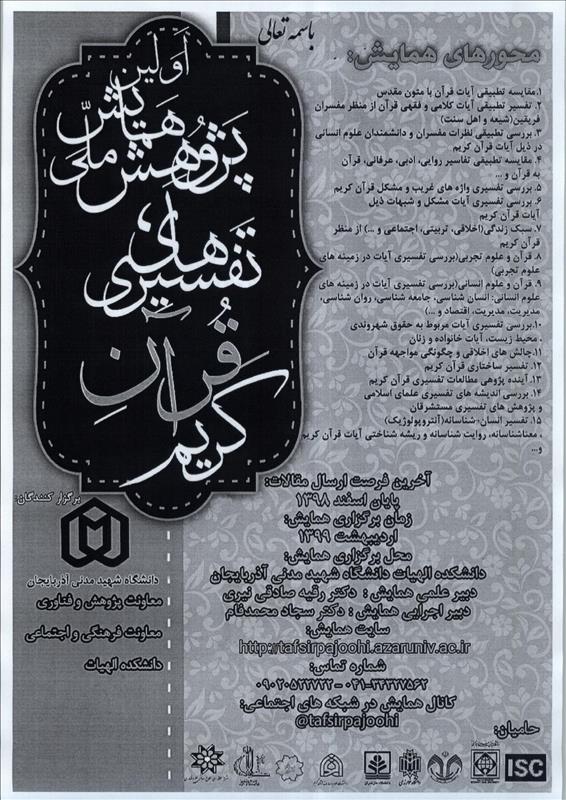 باسمه تعالی
اولین
همایش
ملی
پژوهش
های
تفسیری
قرآن
کریم
محورهای همایش:
۱.مقایسه تطبیقی آیات قرآن با متون مقدس
۲. تفسیر تطبیقی آیات کلامی و فقهی قرآن از منظر مفسران
فریقین(شیعه و اهل سنت)
۳. بررسی تطبیقی نظرات مفسران و دانشمندان علوم انسانی
در ذیل آیات قرآن کریم
۴. مقایسه تطبیقی تفاسیر روایی، ادبی، عرفانی، قرآن
به قرآن و ...
۵. بررسی تفسیری واژه های غریب و مشکل قرآن کریم
۶. بررسی تفسیری آیات مشکل و شبهات ذیل
آیات قرآن کریم
۷. سبک زندگی(اخلاقی، تربیتی، اجتماعی و ...) از منظر
قرآن کریم
۸. قرآن و علوم تجربی(بررسی تفسیری آیات در زمینه های
علوم تجربی)
۹. قرآن و علوم انسانی(بررسی تفسیری آیات در زمینه های
علوم انسانی: انسان شناسی، جامعه شناسی، روان شناسی،
مدیریت، مدیریت، اقتصاد و ...)
۱۰.بررسی تفسیری آیات مربوط به حقوق شهروندی
، محیط زیست، آیات خانواده و زنان
۱۱.چالش های اخلاقی و چگونگی مواجهه قرآن
۱۲. تفسیر ساختاری قرآن کریم
۱۳. آینده پژوهی مطالعات تفسیری قرآن کریم
۱۴. بررسی اندیشه های تفسیری علمای اسلامی
و پژوهش های تفسیری مستشرقان
۱۵. تفسیر انسان شناسانه(آنتروپولوژیک)
، معناشناسانه، روایت شناسانه و ریشه شناختی آیات قرآن کریم
و...
آخرین فرصت ارسال مقالات:
پایان اسفند ۱۳۹۸
زمان برگزاری همایش:
اردیبهشت ۱۳۹۹
محل برگزاری همایش:
دانشکده الهیات دانشگاه شهید مدنی آذربایجان
دبیر علمی همایش : دکتر رقیه صادقی نیری
دبیر اجرایی همایش : دکتر سجاد محمدفام
سایت همایش:
http://tafsirpajoohi.azaruniv.ac.ir
شماره تماس:
۰۴۱-۳۴۳۲۷۵۶۲ - ۰۹۰۲۰۵۲۲۷۲۲
کانال همایش در شبکه های اجتماعی:
@tafsirpajoohi
برگزار کنندگان:
دانشگاه شهید مدنی آذربایجان
معاونت پژوهش و فناوری
معاونت فرهنگی و اجتماعی
دانشکده الهیات
حامیان:
ISC